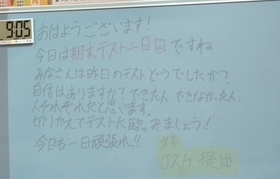 9:05
おはようございます!
今日は期末テスト二日目ですね
みなさんは昨日のテストどうでしたか?
自信はありますか?できた人、できなかった人、
人それぞれだと思います。
切りかえてテストに臨みましょう!
今日も一日頑張れ!!
提出